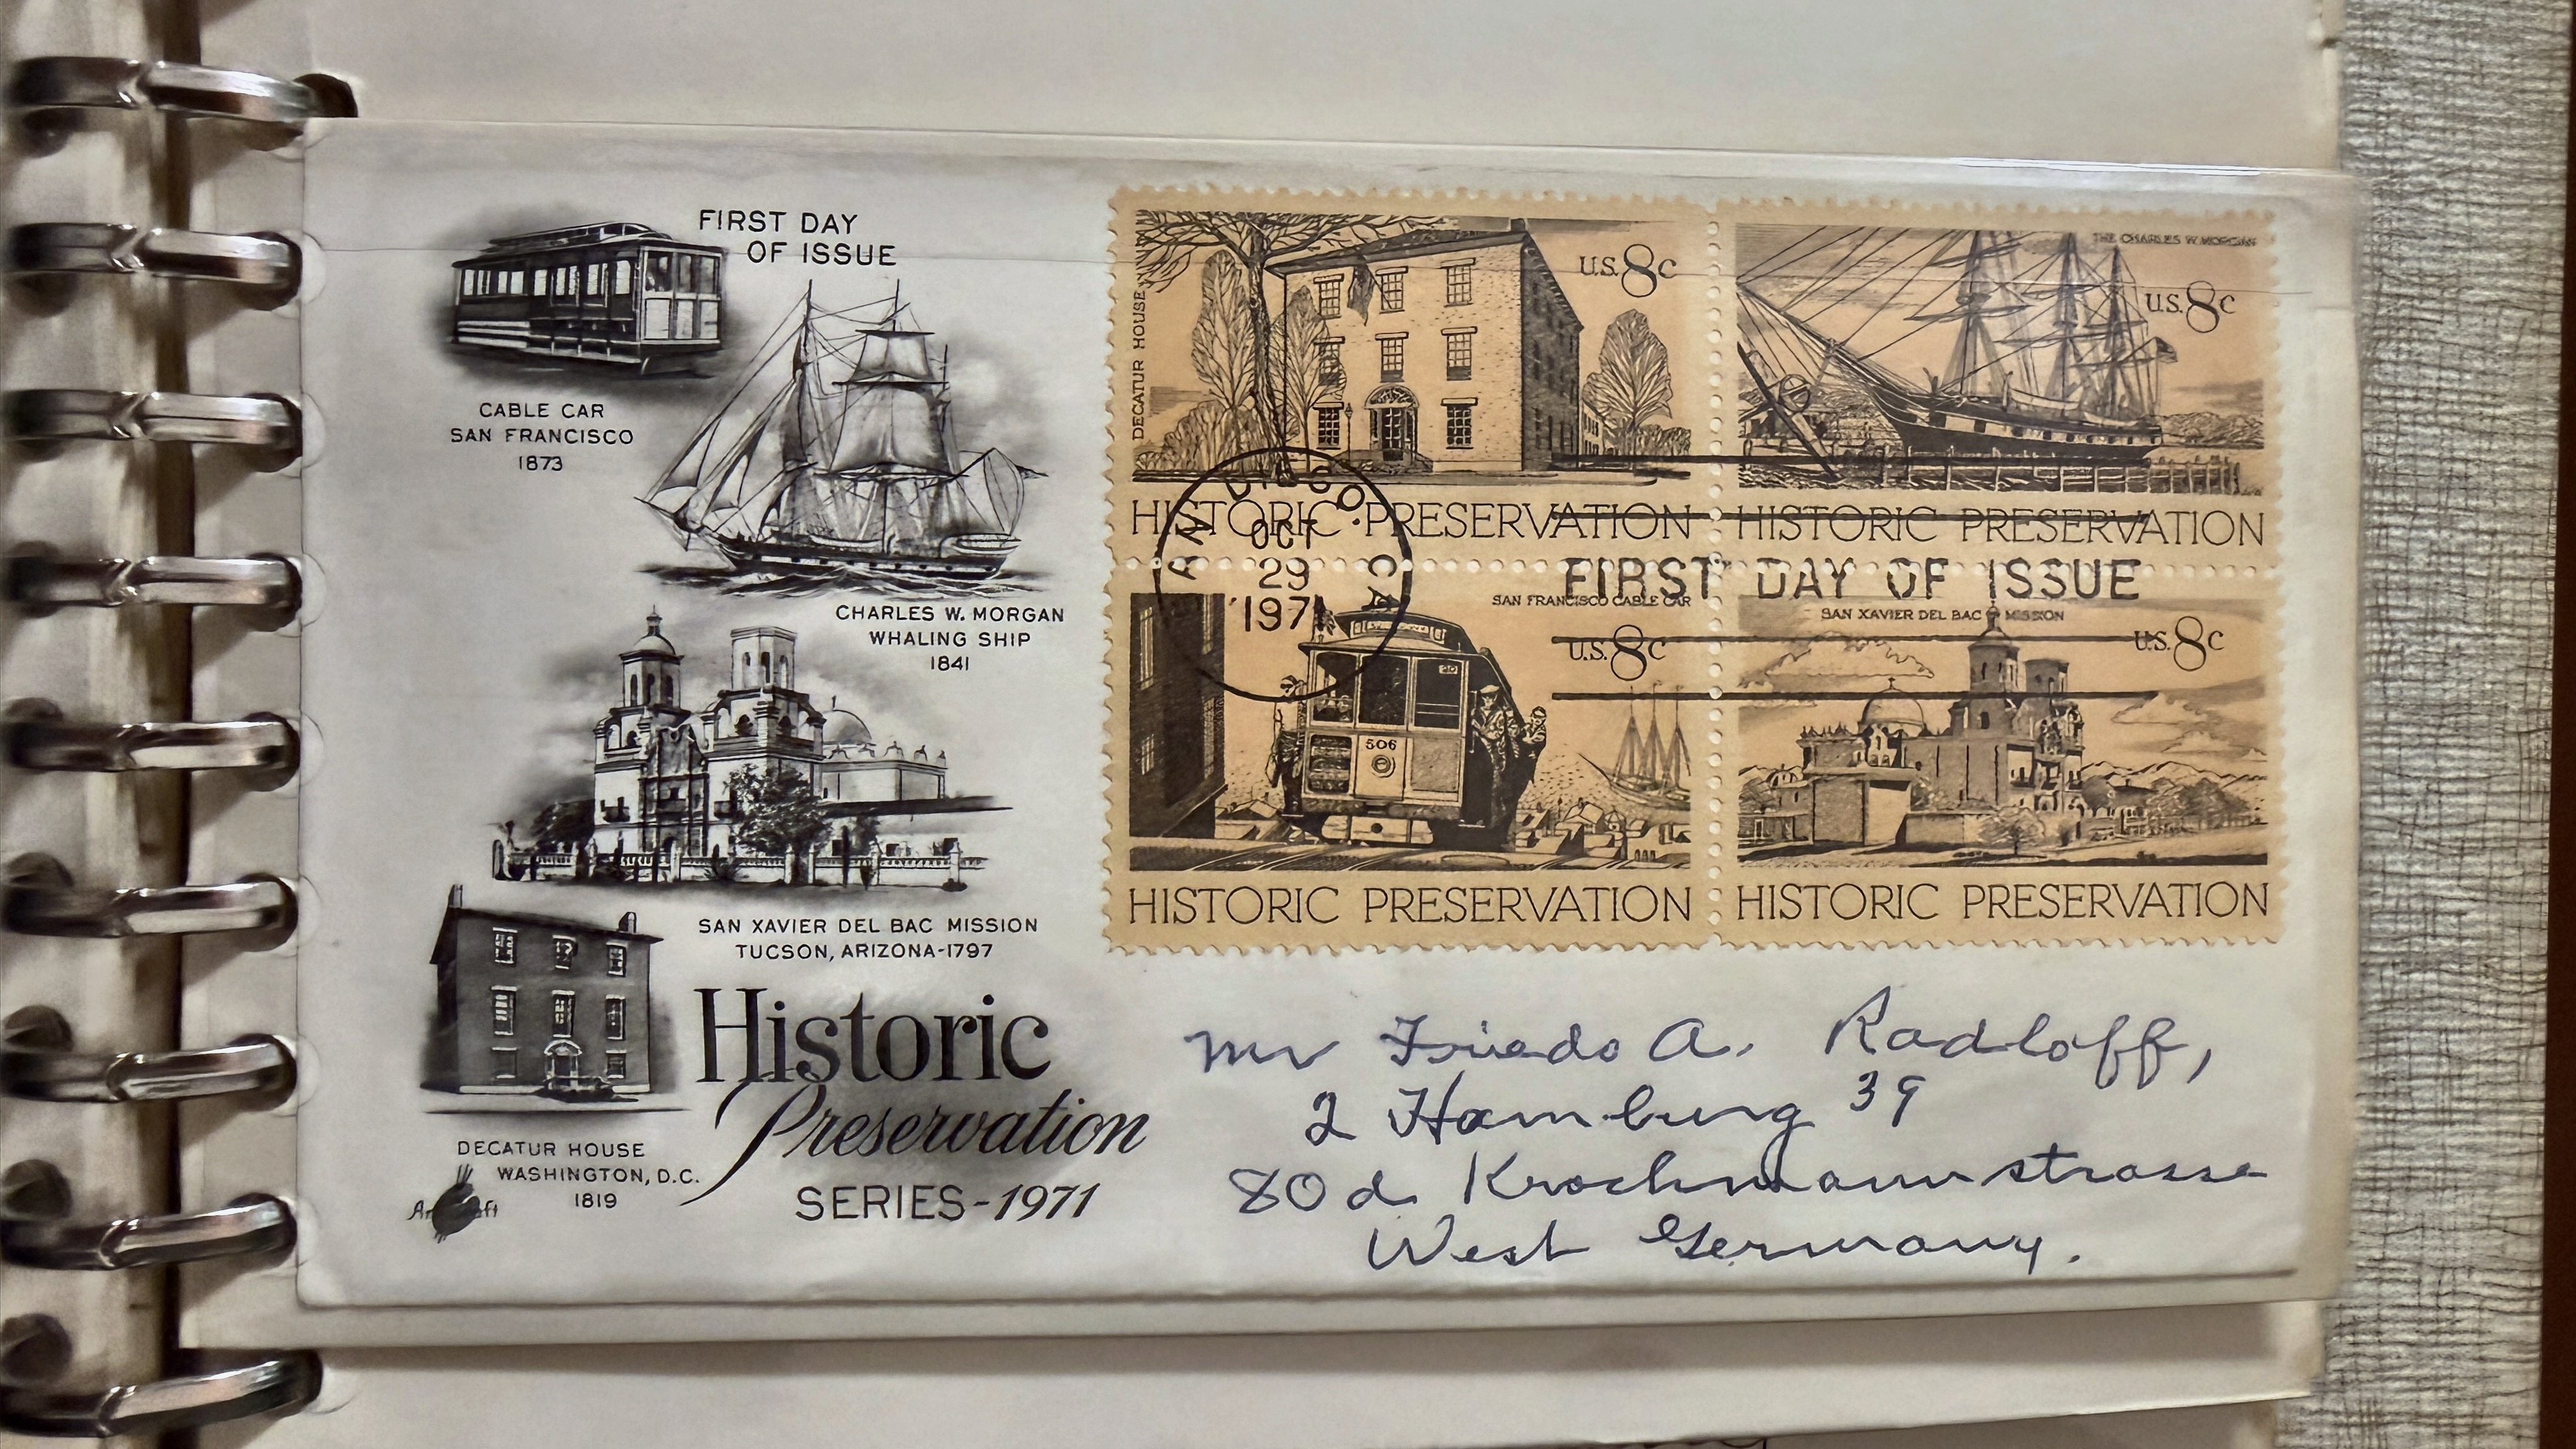 FIRST DAY
OF ISSUE
CABLE CAR
SAN FRANCISCO
1873
CHARLES W. MORGAN
WHALING SHIP
1841
SAN XAVIER DEL BAC MISSION
TUCSON, ARIZONA-1797
DECATUR HOUSE
WASHINGTON, D.C.
1819
Historic
Preservation
SERIES-1971
DECATUR HOUSE
U.S. 8c
HISTORIC PRESERVATION
THE CHARLES W. MORGAN
U.S. 8c
HISTORIC PRESERVATION
OCT
29
1971
FIRST DAY OF ISSUE
SAN FRANCISCO CABLE CAR
U.S. 8c
20
506
HISTORIC PRESERVATION
SAN XAVIER DEL BAC MISSION
U.S. 8c
HISTORIC PRESERVATION
Mr Friedo A. Radloff,
2 Hamburg 39
80 d Krochmannstrasse
West Germany.